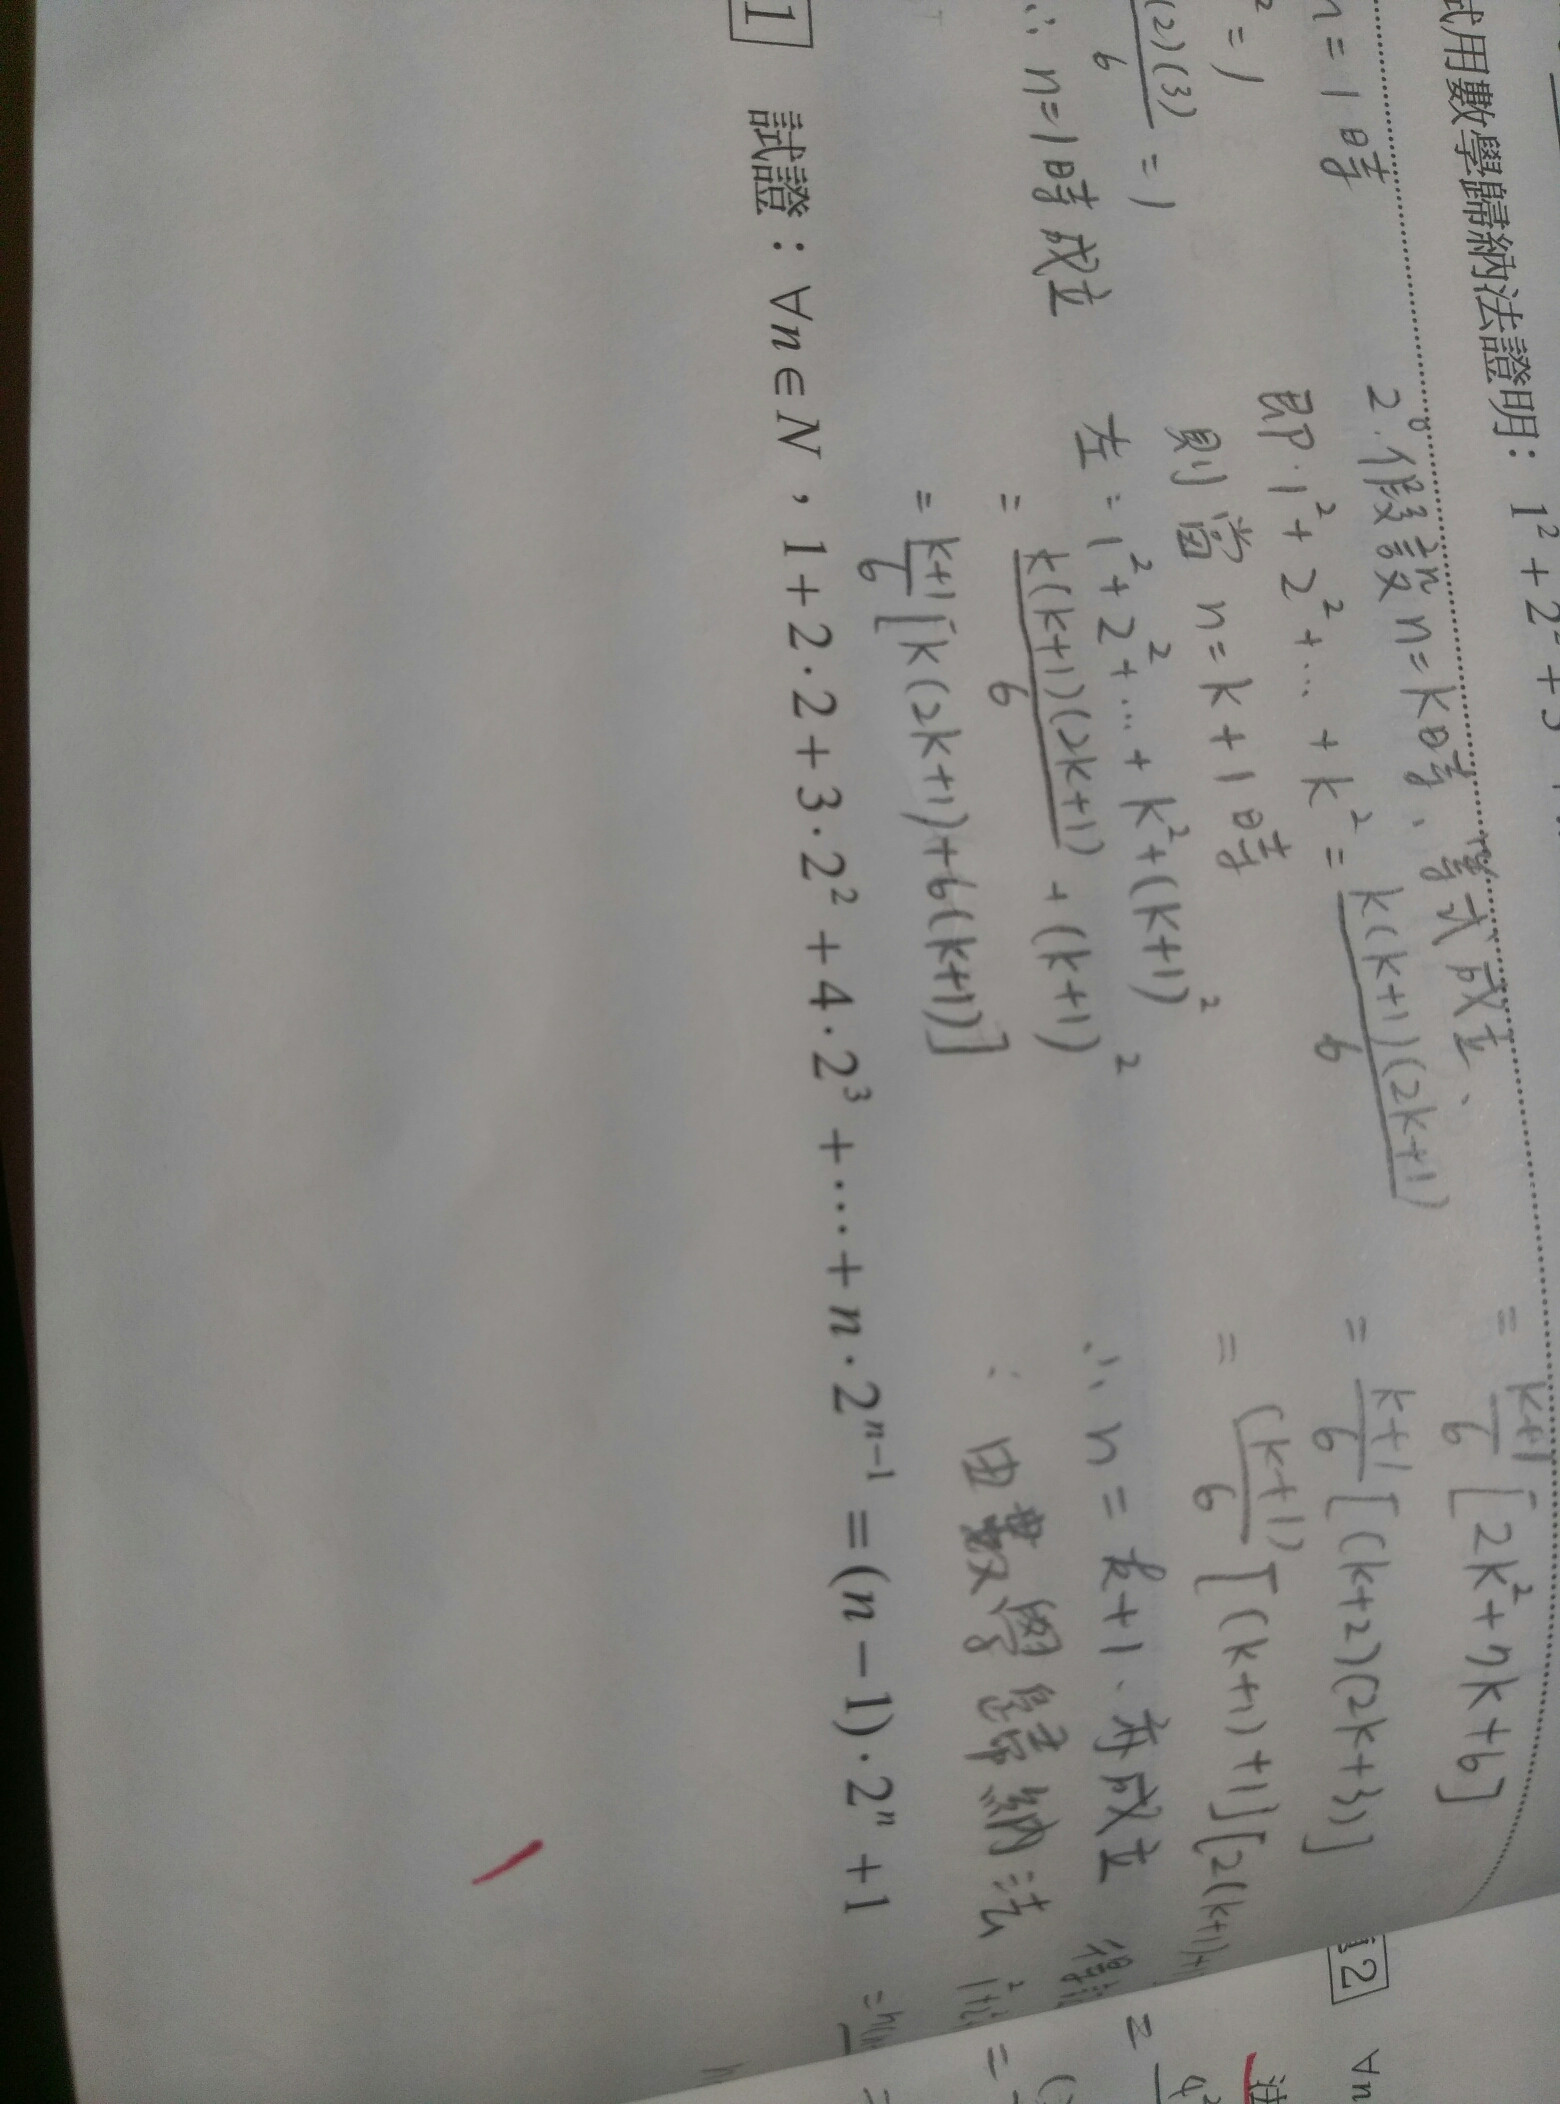 試用數學歸納法證明：1² + 2² + 3
n = 1 時
² = 1
(2)(3)/6 = 1
∴ n = 1 時成立
2° 假設 n = k 時、等式成立、
即 1² + 2² + ... + k² = k(k+1)(2k+1)/6
則當 n = k + 1 時
左 = 1² + 2² + ... + k² + (k+1)²
= k(k+1)(2k+1)/6 + (k+1)²
= k+1/6 [k(2k+1)+6(k+1)]
= k+1/6 [2k² + 7k + 6]
= k+1/6 [(k+2)(2k+3)]
= (k+1)/6 [(k+1)+1][2(k+1)+1
∴ n = k+1、亦成立
由數學歸納法 得證
1 試證：∀n∈N，1+2·2+3·2²+4·2³+⋯+n·2ⁿ⁻¹=(n−1)·2ⁿ+1
2 ∀n